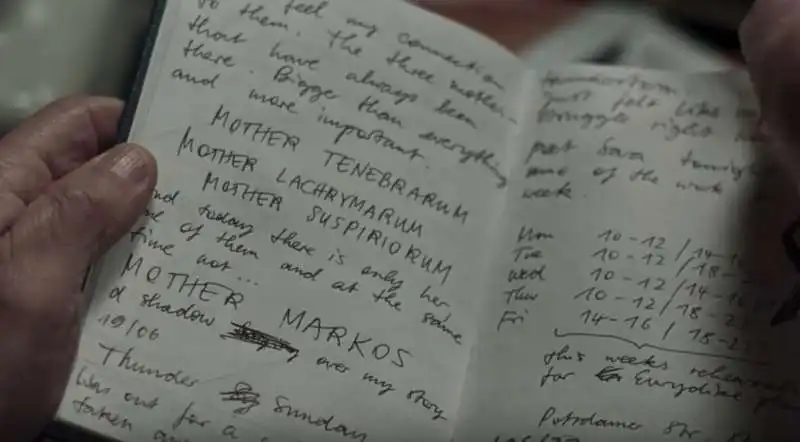 feel my connection
to them. The three mother-
that have always been
there. Bigger than everything
and more important.
MOTHER TENEBRARUM
MOTHER LACHRYMARUM
MOTHER SUSPIRIORUM
and today there is only her
of them and at the same
time not...
MOTHER MARKOS
a shadow over my story
19/06
Thunder Sunday
Was out for a
taken
just felt like
struggle right
past Sara
one of the
week
Mon 10-12 / 14-
Tue 10-12 / 18-
Wed 10-12 / 14-
Thur 10-12 / 18-
Fri 14-16 / 18-
this weeks
for Eurydike
Potsdamer Str